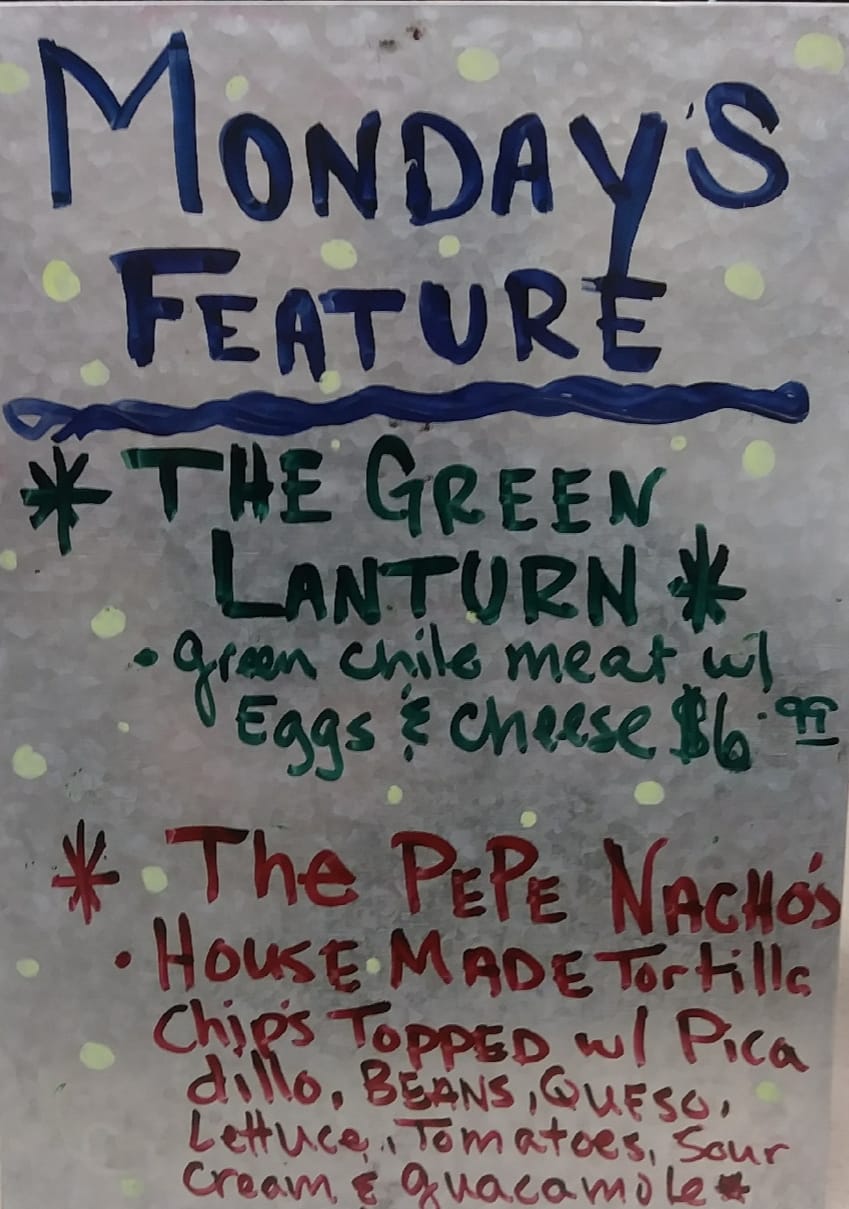 MONDAY'S
FEATURE
* THE GREEN
LANTURN *
• green chile meat w/
Eggs & cheese $6.99
* The PEPE NACHO'S
• HOUSE MADE Tortilla
Chip's TOPPED w/ Pica
dillo, BEANS, QUESO,
Lettuce, Tomatoes, Sour
Cream & guacamole*